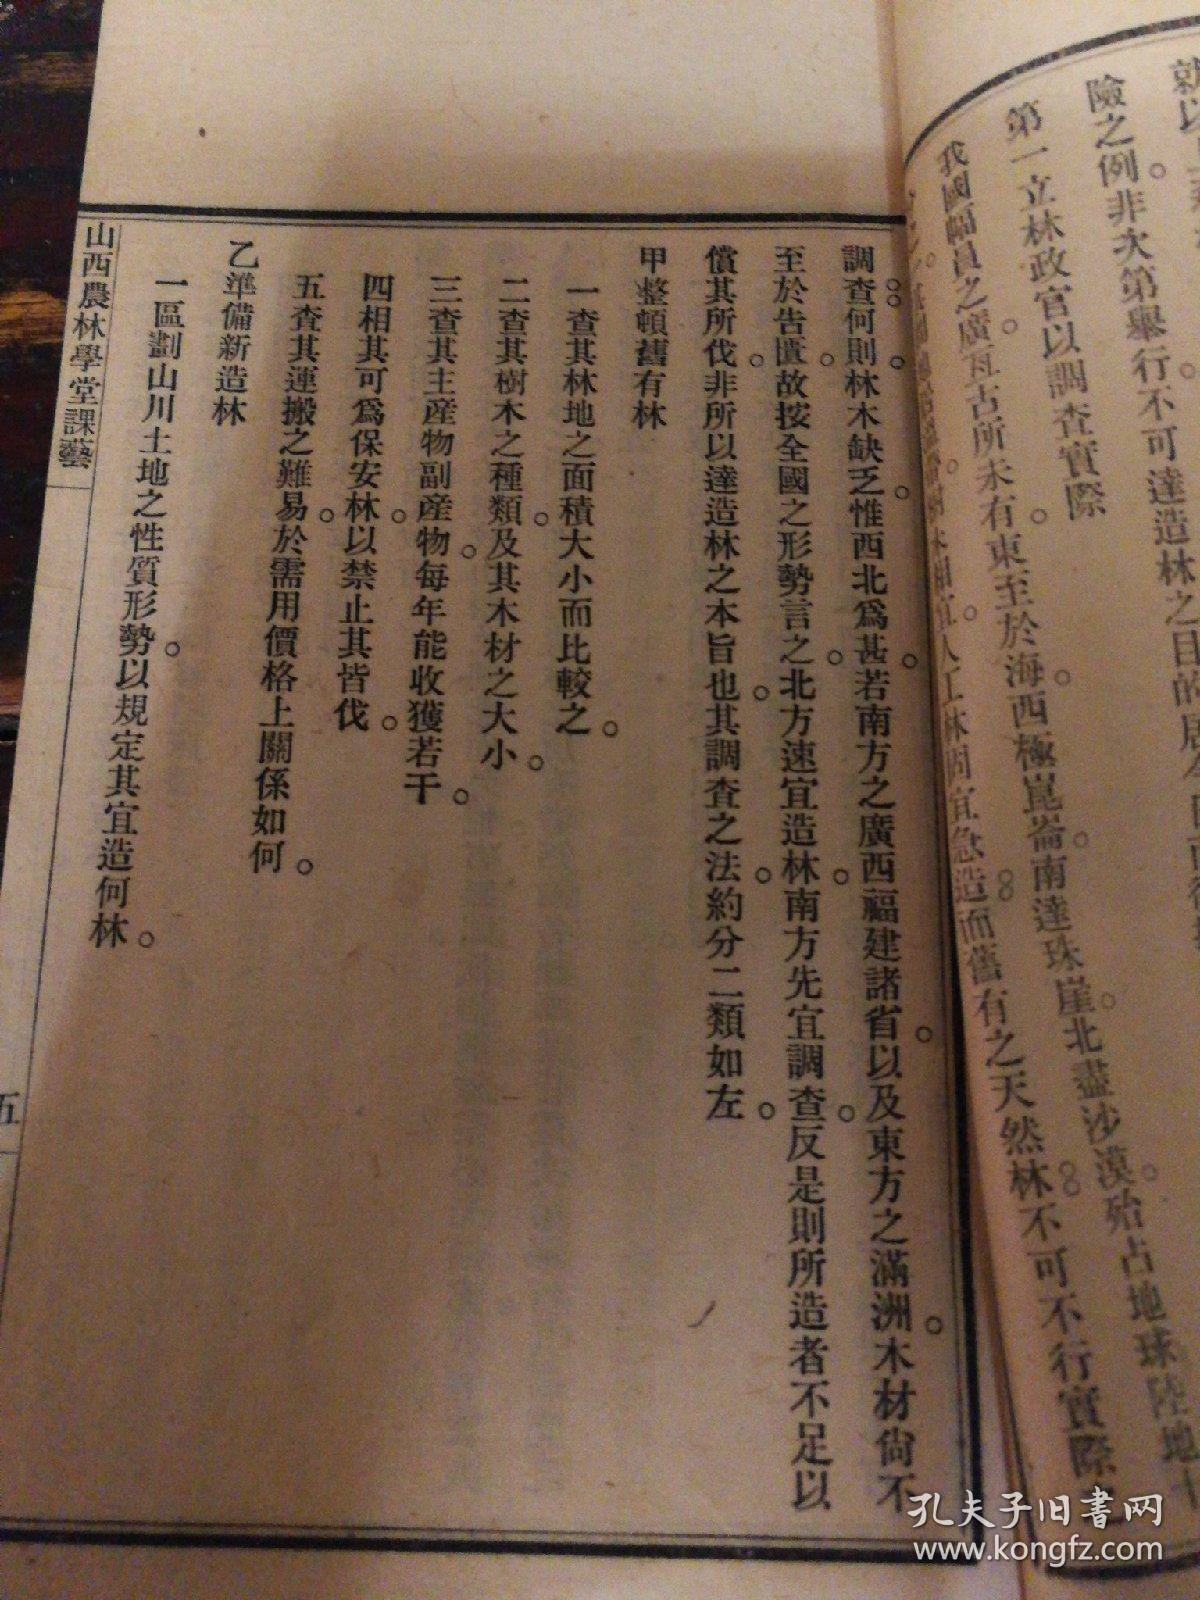 險之例。非次第舉行。不可達造林之目的。
第一立林政官以調查實際
我國幅員之廣。亙古所未有。東至於海。西極崑崙。南達珠崖。北盡沙漠。殆占地球陸地十
人工林固宜急造。而舊有之天然林。不可不行實際
調查。何則。林木缺乏。惟西北爲甚。若南方之廣西福建諸省。以及東方之滿洲。木材尙不
至於告匱。故按全國之形勢言之。北方速宜造林。南方先宜調查。反是則所造者不足以
償其所伐。非所以達造林之本旨也。其調查之法。約分二類如左。
甲整頓舊有林
一查其林地之面積大小而比較之。
二查其樹木之種類。及其木材之大小。
三查其主産物副産物。每年能收獲若干。
四相其可爲保安林。以禁止其皆伐。
五査其運搬之難易。於需用價格上關係如何。
乙準備新造林
一區劃山川土地之性質形勢。以規定其宜造何林。
山西農林學堂課藝
五
孔夫子旧书网
www.kongfz.com